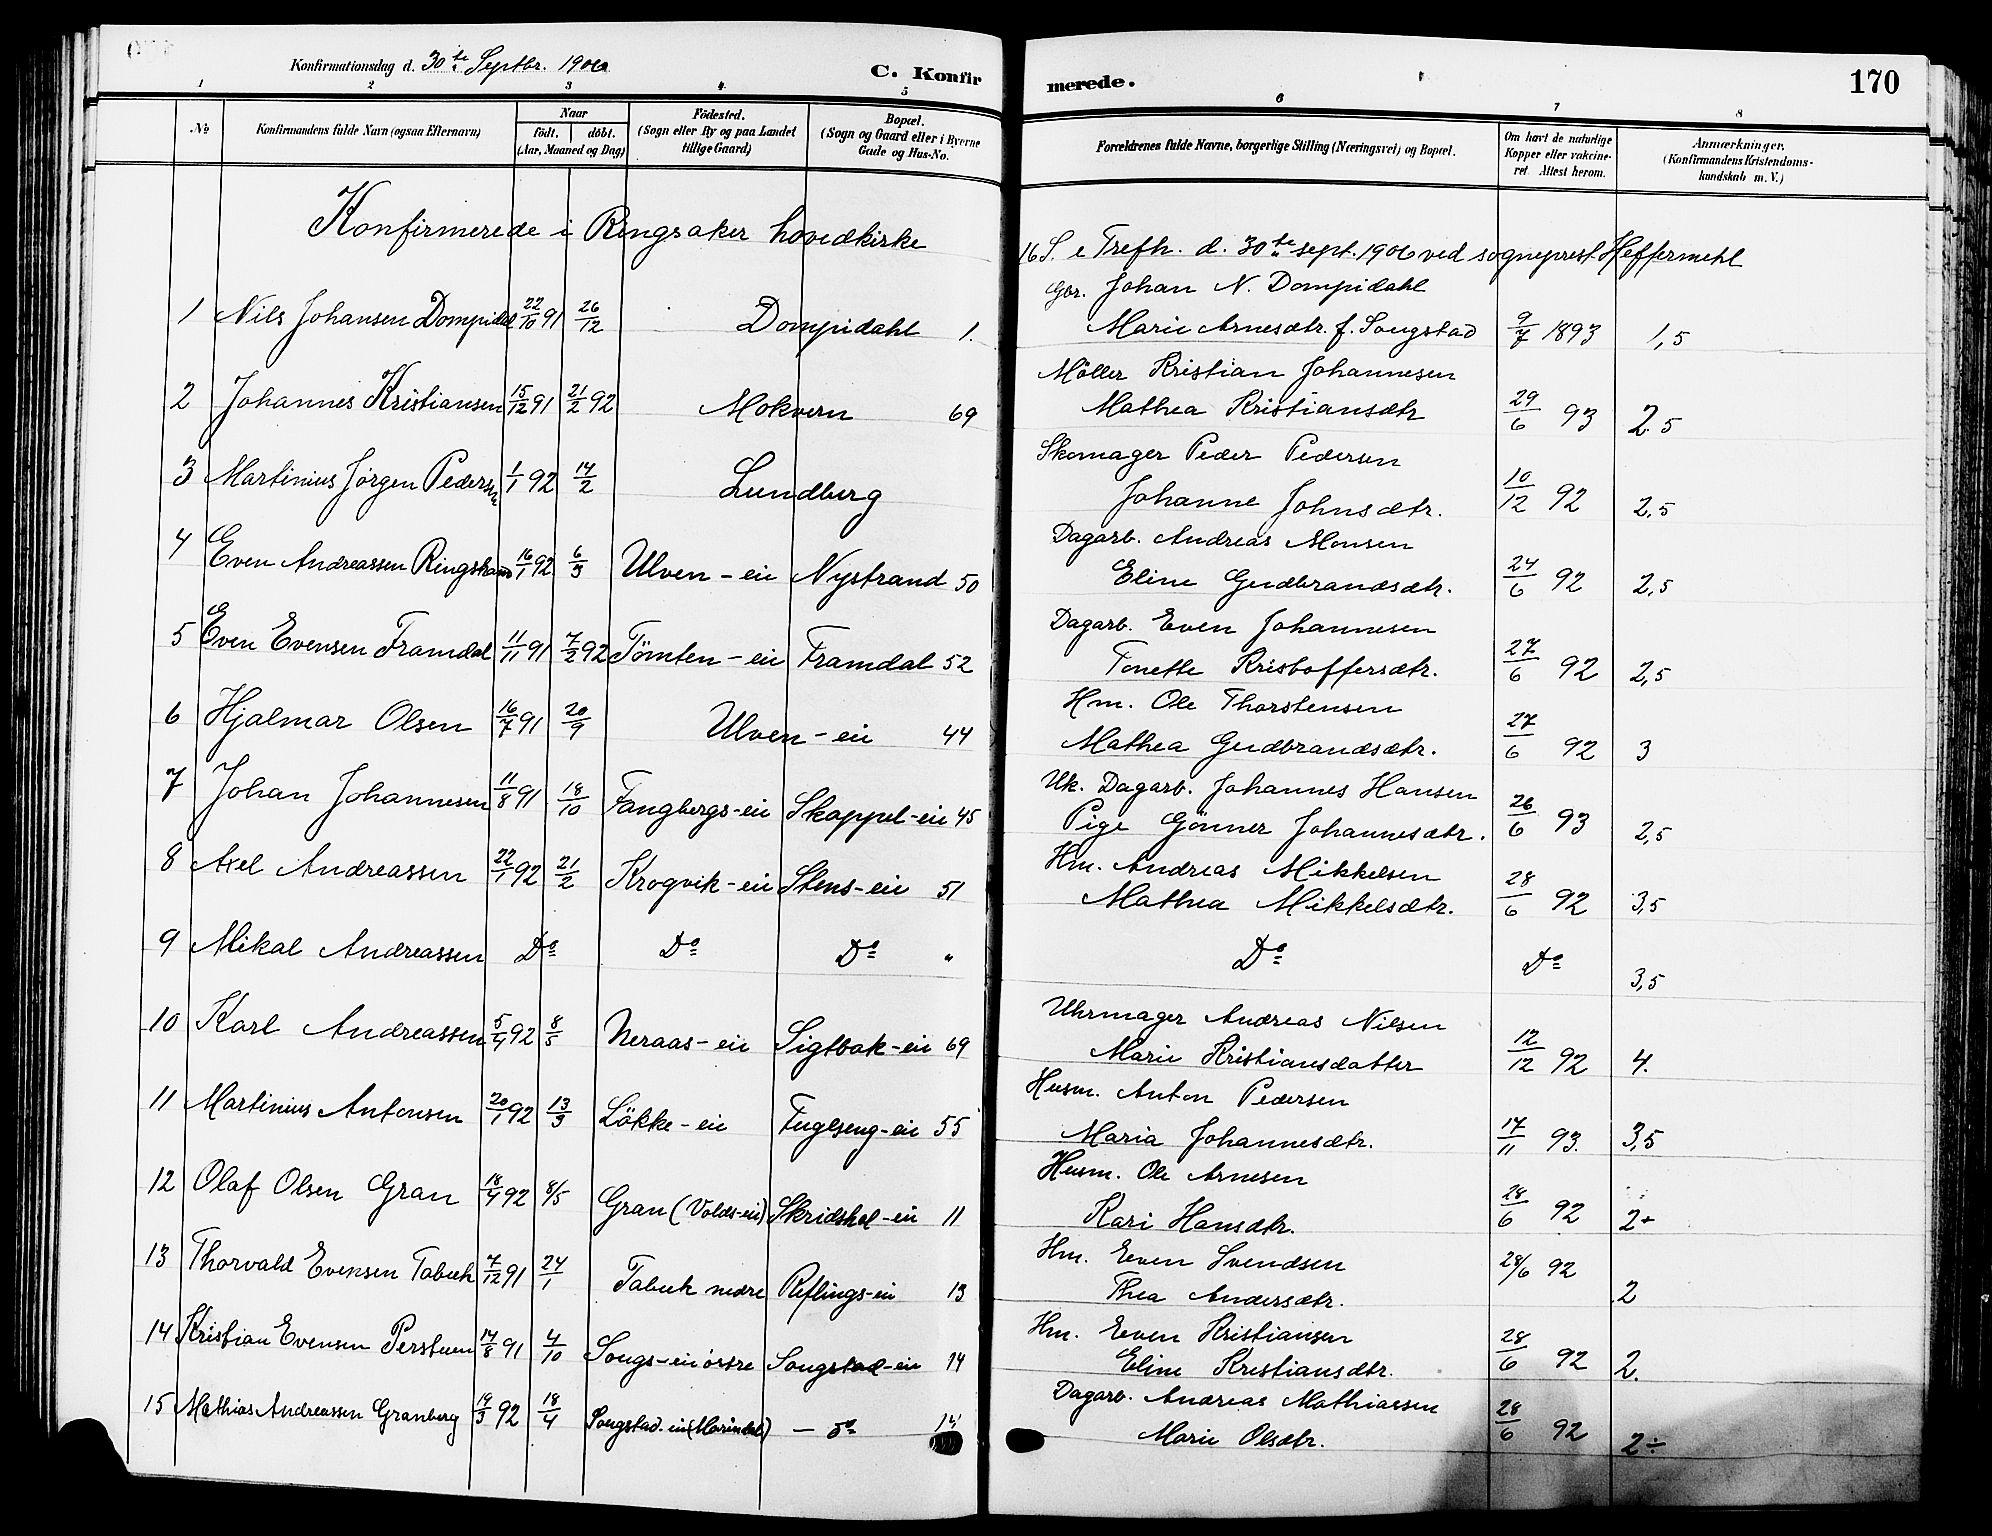 Konfirmationsdag d. 30te Septbr. 1906
C. Konfir
merede.
170
1 2 3 4 5 6 7 8
No
Konfirmandens fulde Navn (ogsaa Efternavn)
Naar
födt. döbt.
(Aar, Maaned og Dag)
Födested.
(Sogn eller By og paa Landet
tillige Gaard)
Bopæl.
(Sogn og Gaard eller i Byerne
Gade og Hus-No.
Forældrenes fulde Navne, borgerlige Stilling (Næringsvei) og Bopæl.
Om havt de naturlige
Kopper eller vakcine-
ret. Attest herom.
Anmærkninger.
(Konfirmandens Kristendoms-
kundskab m. V.)
Konfirmerede i Ringsaker hovedkirke
16 S. e Trefh. d. 30te sept. 1906 ved sogneprest Heffermehl
Gbr. Johan N. Dompidahl
1 Nils Johansen Dompidal 22/10 91 26/12 Dompidahl 1. Marie Arnesdtr. f. Sougstad 9/7 1893 1,5
Möller Kristian Johannesen
2 Johannes Kristiansen 15/12 91 21/2 92 Mokvern 69 Mathea Kristiansdtr 29/6 93 2.5
Skomager Peder Pedersen
3 Martinius Jørgen Pedersen 1/1 92 14/2 Lundberg Johanne Johnsdtr. 10/12 92 2,5
Dagarb. Andreas Monsen
4 Even Andreassen Ringstrand 16/1 92 6/3 Ulven-eie Nystrand 50 Eline Gudbrandsdtr. 24/6 92 2,5
Dagarb. Even Johannesen
5 Even Evensen Framdal 11/11 91 7/2 92 Tömten-eie Framdal 52 Tonette Kristoffersdtr. 27/6 92 2,5
Hm. Ole Thorstensen
6 Hjalmar Olsen 16/7 91 20/9 Ulven-eie 44 Mathea Gudbrandsdtr. 27/6 92 3
Uk. Dagarb. Johannes Hansen
7 Johan Johannesen 11/8 91 18/10 Fangbergs-eie Skappel-eie 45 Pige Gönner Johannesdtr. 26/6 93 2,5
Hm. Andreas Mikkelsen
8 Axel Andreassen 22/1 92 21/2 Krogvik-eie Stens-eie 51 Mathea Mikkelsdtr. 28/6 92 3,5
9 Mikal Andreassen Do Do Do " Do Do 3,5
Uhrmager Andreas Nilsen
10 Karl Andreassen 5/4 92 8/5 Neraas-eie Sigtbak-eie 69 Marie Kristiansdatter 12/12 92 4.
Husm. Anton Pedersen
11 Martinius Antonsen 20/1 92 13/3 Lökke-eie Fuglseng-eie 55 Maria Johannesdtr. 17/11 93. 3,5
Husm. Ole Arnesen
12 Olaf Olsen Gran 18/4 92 8/5 Gran (Volds-eie) Skridshol-eie 11 Kari Hansdtr. 28/6 92 2+
Hm. Even Svendsen
13 Thorvald Evensen Tabuk 7/12 91 24/1 Tabuk nedre Reflings-eie 13 Thea Andersdtr. 28/6 92 2
Hm. Even Kristiansen
14 Kristian Evensen Perstuen 14/8 91 4/10 Sougs-eie østre Sougstad-eie 14 Eline Kristiansdtr. 28/6 92 2.
Dagarb. Andreas Mathiassen
15 Mathias Andreassen Granberg 19/3 92 18/4 Sougstad-eie (Marindal) — do 14 Marie Olsdtr. 28/6 92 2÷